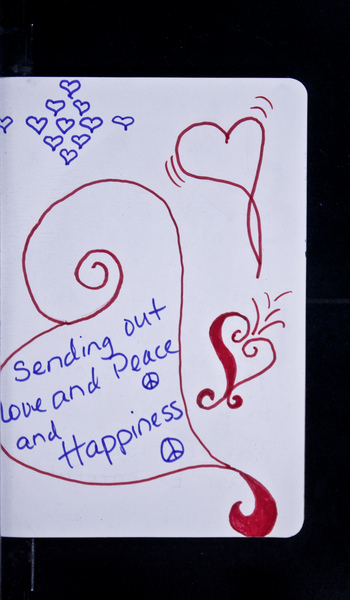 Sending out
Love and Peace
and
Happiness